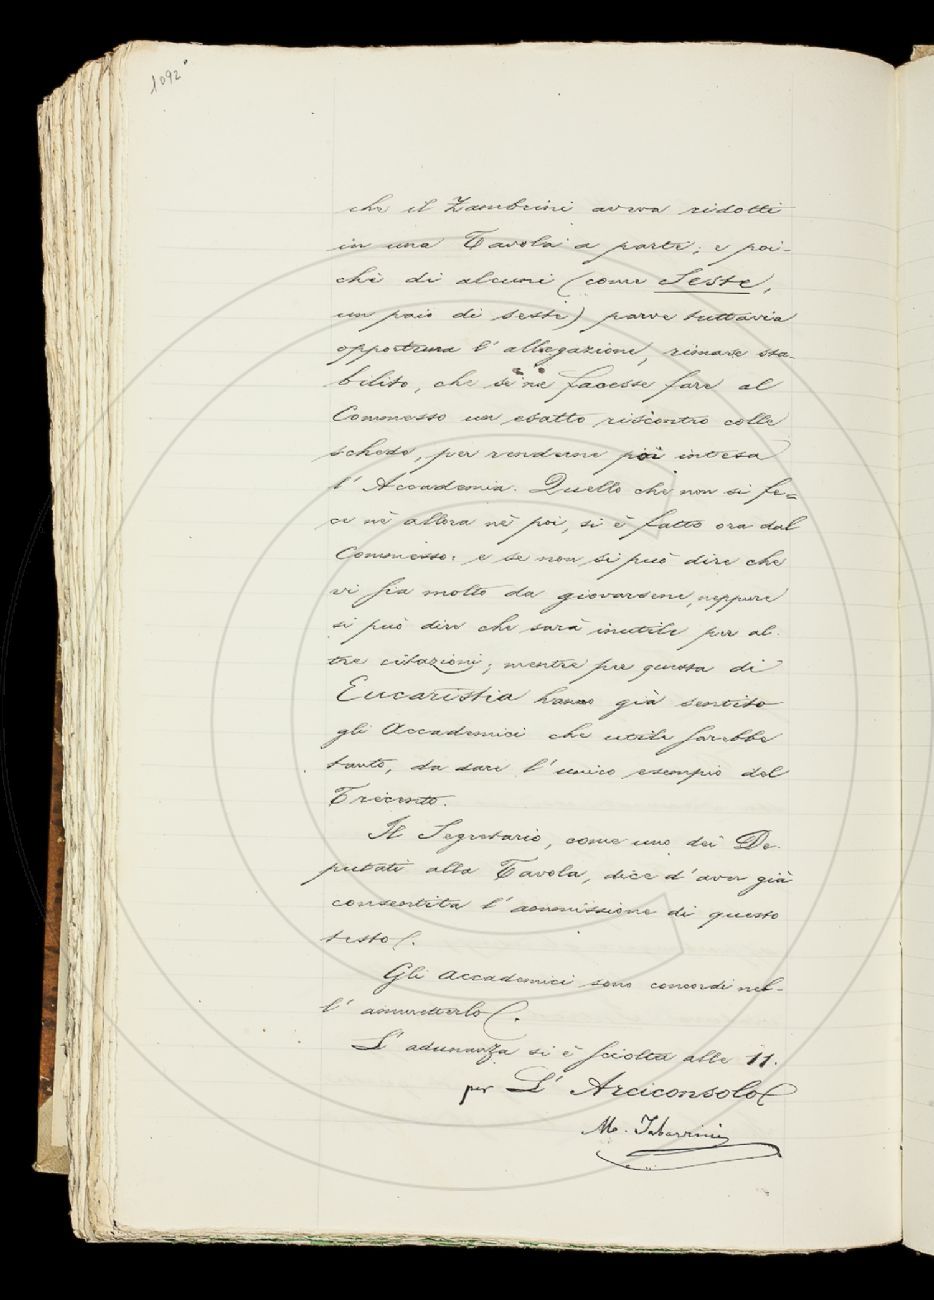 1092
che il Zambrini aveva ridotti
in una Tavola a parte; e poi-
chè di alcuni (come Seste,
un paio di seste) parve tuttavia
opportuna l'allegazione, rimase sta-
bilito, che se ne facesse fare al
Commesso un esatto riscontro colle
schede, per renderne poi intesa
l'Accademia. Quello che non si fe=
ce nè allora nè poi, si è fatto ora dal
Commesso: e se non si può dire che
vi sia molto da giovarsene, neppure
si può dire che sarà inutile per al-
tre citazioni; mentre per questa di
Eucaristia hanno già sentito
gli Accademici che utile sarebbe
tanto, da dare l'unico esempio del
Trecento.
Il Segretario, come uno dei De-
putati alla Tavola, dice d'aver già
consentita l'ammissione di questo
testo.
Gli Accademici sono concordi nel-
l'ammetterlo.
L'adunanza si è sciolta alle 11.
per L'Arciconsolo
M. Tabarrini